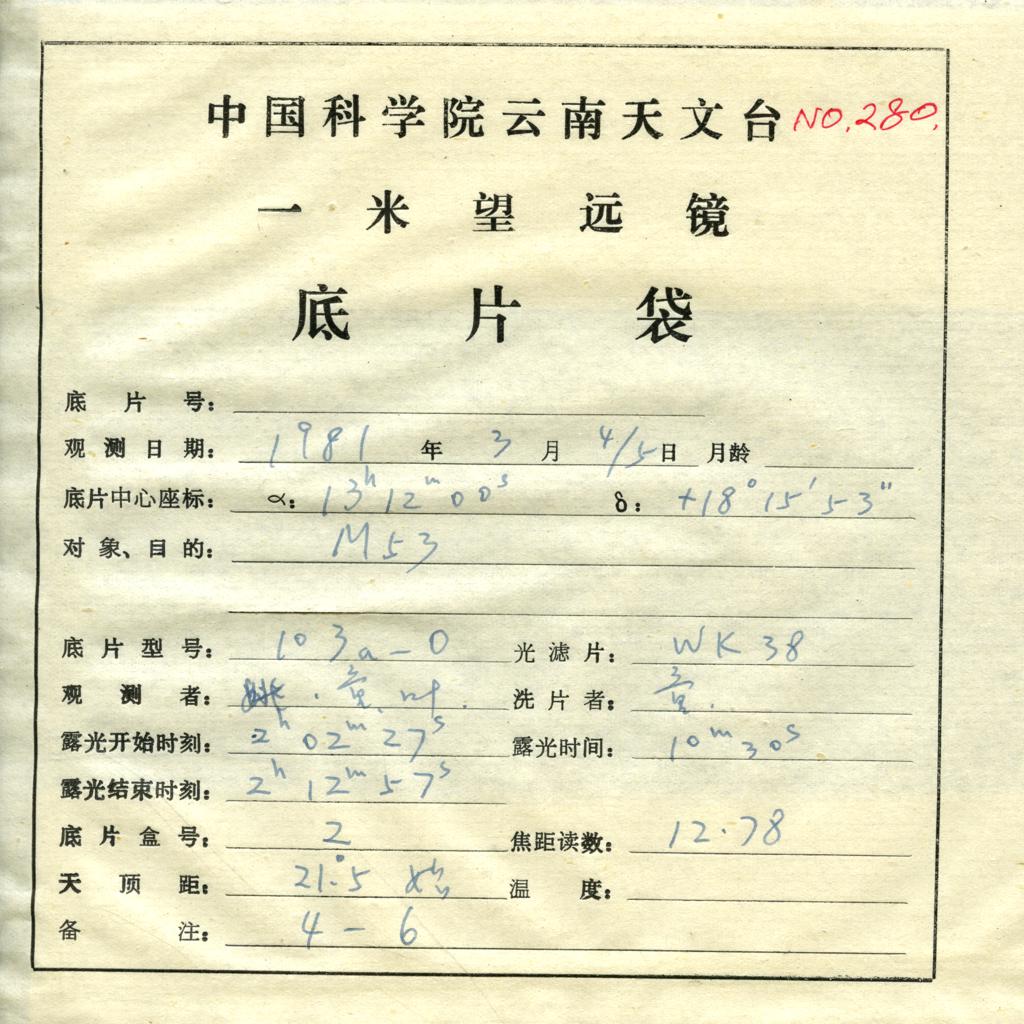 中国科学院云南天文台 NO.280.
一米望远镜
底片袋
底片号:
观测日期: 1981 年 3 月 4/5 日 月龄
底片中心座标: α: 13h 12m 00s δ: +18° 15′ 53″
对象、目的: M53
底片型号: 103a-O 光滤片: WK 38
观测者: 姚. 童. 叶. 洗片者: 童.
露光开始时刻: 2h 02m 27s 露光时间: 10m 30s
露光结束时刻: 2h 12m 57s
底片盒号: 2 焦距读数: 12.78
天顶距: 21°.5 始 温度:
备注: 4-6